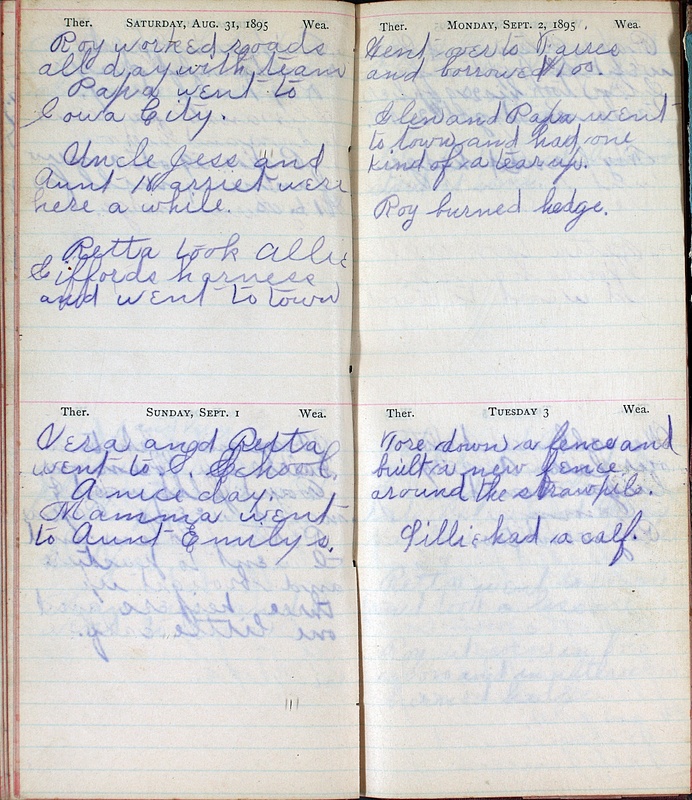 Ther. SATURDAY, AUG. 31, 1895 Wea.
Roy worked roads
all day with team
Papa went to
Iowa City.
Uncle Jess and
Aunt Harriet were
here a while.
Retta took Allie
Giffords harness
and went to town
Ther. SUNDAY, SEPT. 1 Wea.
Vera and Retta
went to S. School.
A nice day.
Mamma went
to Aunt Emily's.
Ther. MONDAY, SEPT. 2, 1895 Wea.
Went over to
and borrowed $100.
Glen and Papa went
to town and had one
kind of a tear up.
Roy burned hedge.
Ther. TUESDAY 3 Wea.
Tore down a fence and
built a new fence
around the strawpile.
Lillie had a calf.